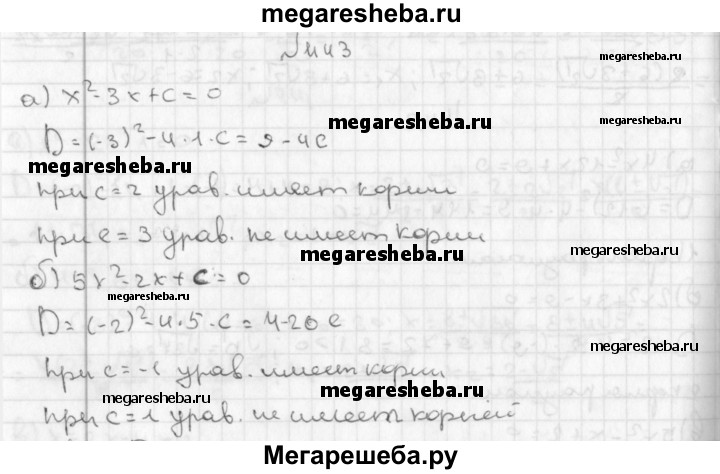 megaresheba.ru
N 443
megaresheba.ru
а) x² - 3x + c = 0
megaresheba.ru
megaresheba.ru
D = (-3)² - 4·1·c = 9 - 4c
megaresheba.ru
при c = 2 урав. имеет корни
при c = 3 урав. не имеет корни
megaresheba.ru
megaresheba.ru
б) 5x² - 2x + c = 0
megaresheba.ru
D = (-2)² - 4·5·c = 4 - 20c
megaresheba.ru
при c = -1 урав. имеет корни
megaresheba.ru
при c = 1 урав. не имеет корней
Мегарешеба.ру